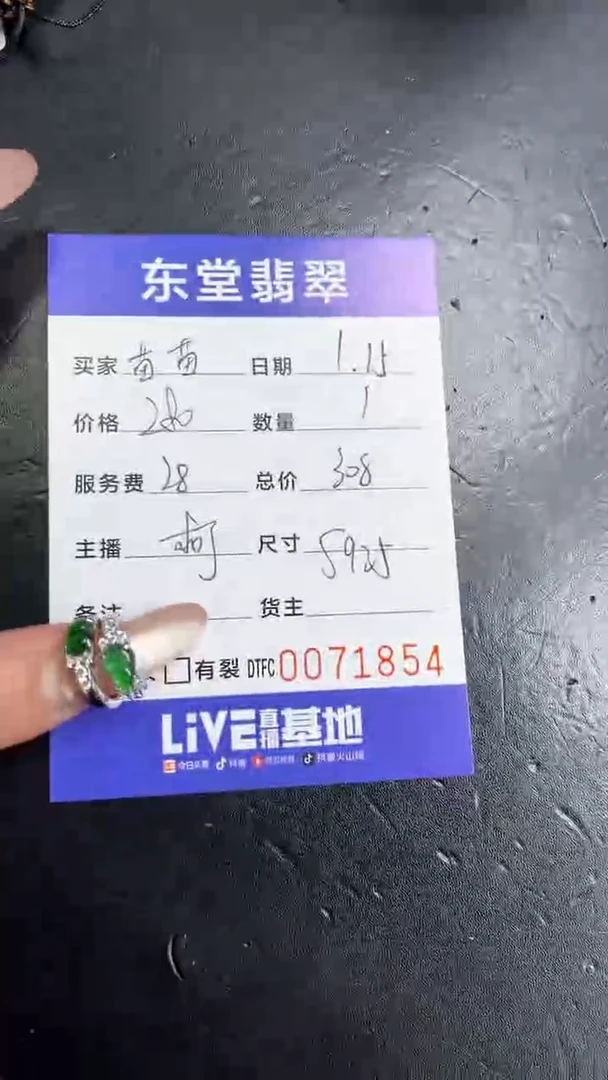 东堂翡翠
买家 苗苗 日期 1.15
价格 280 数量 1
服务费 28 总价 308
主播 尺寸 5925
备注 货主
有裂 DTFC 0071854
LiVE直播基地
今日头条 抖音 抖音火山版